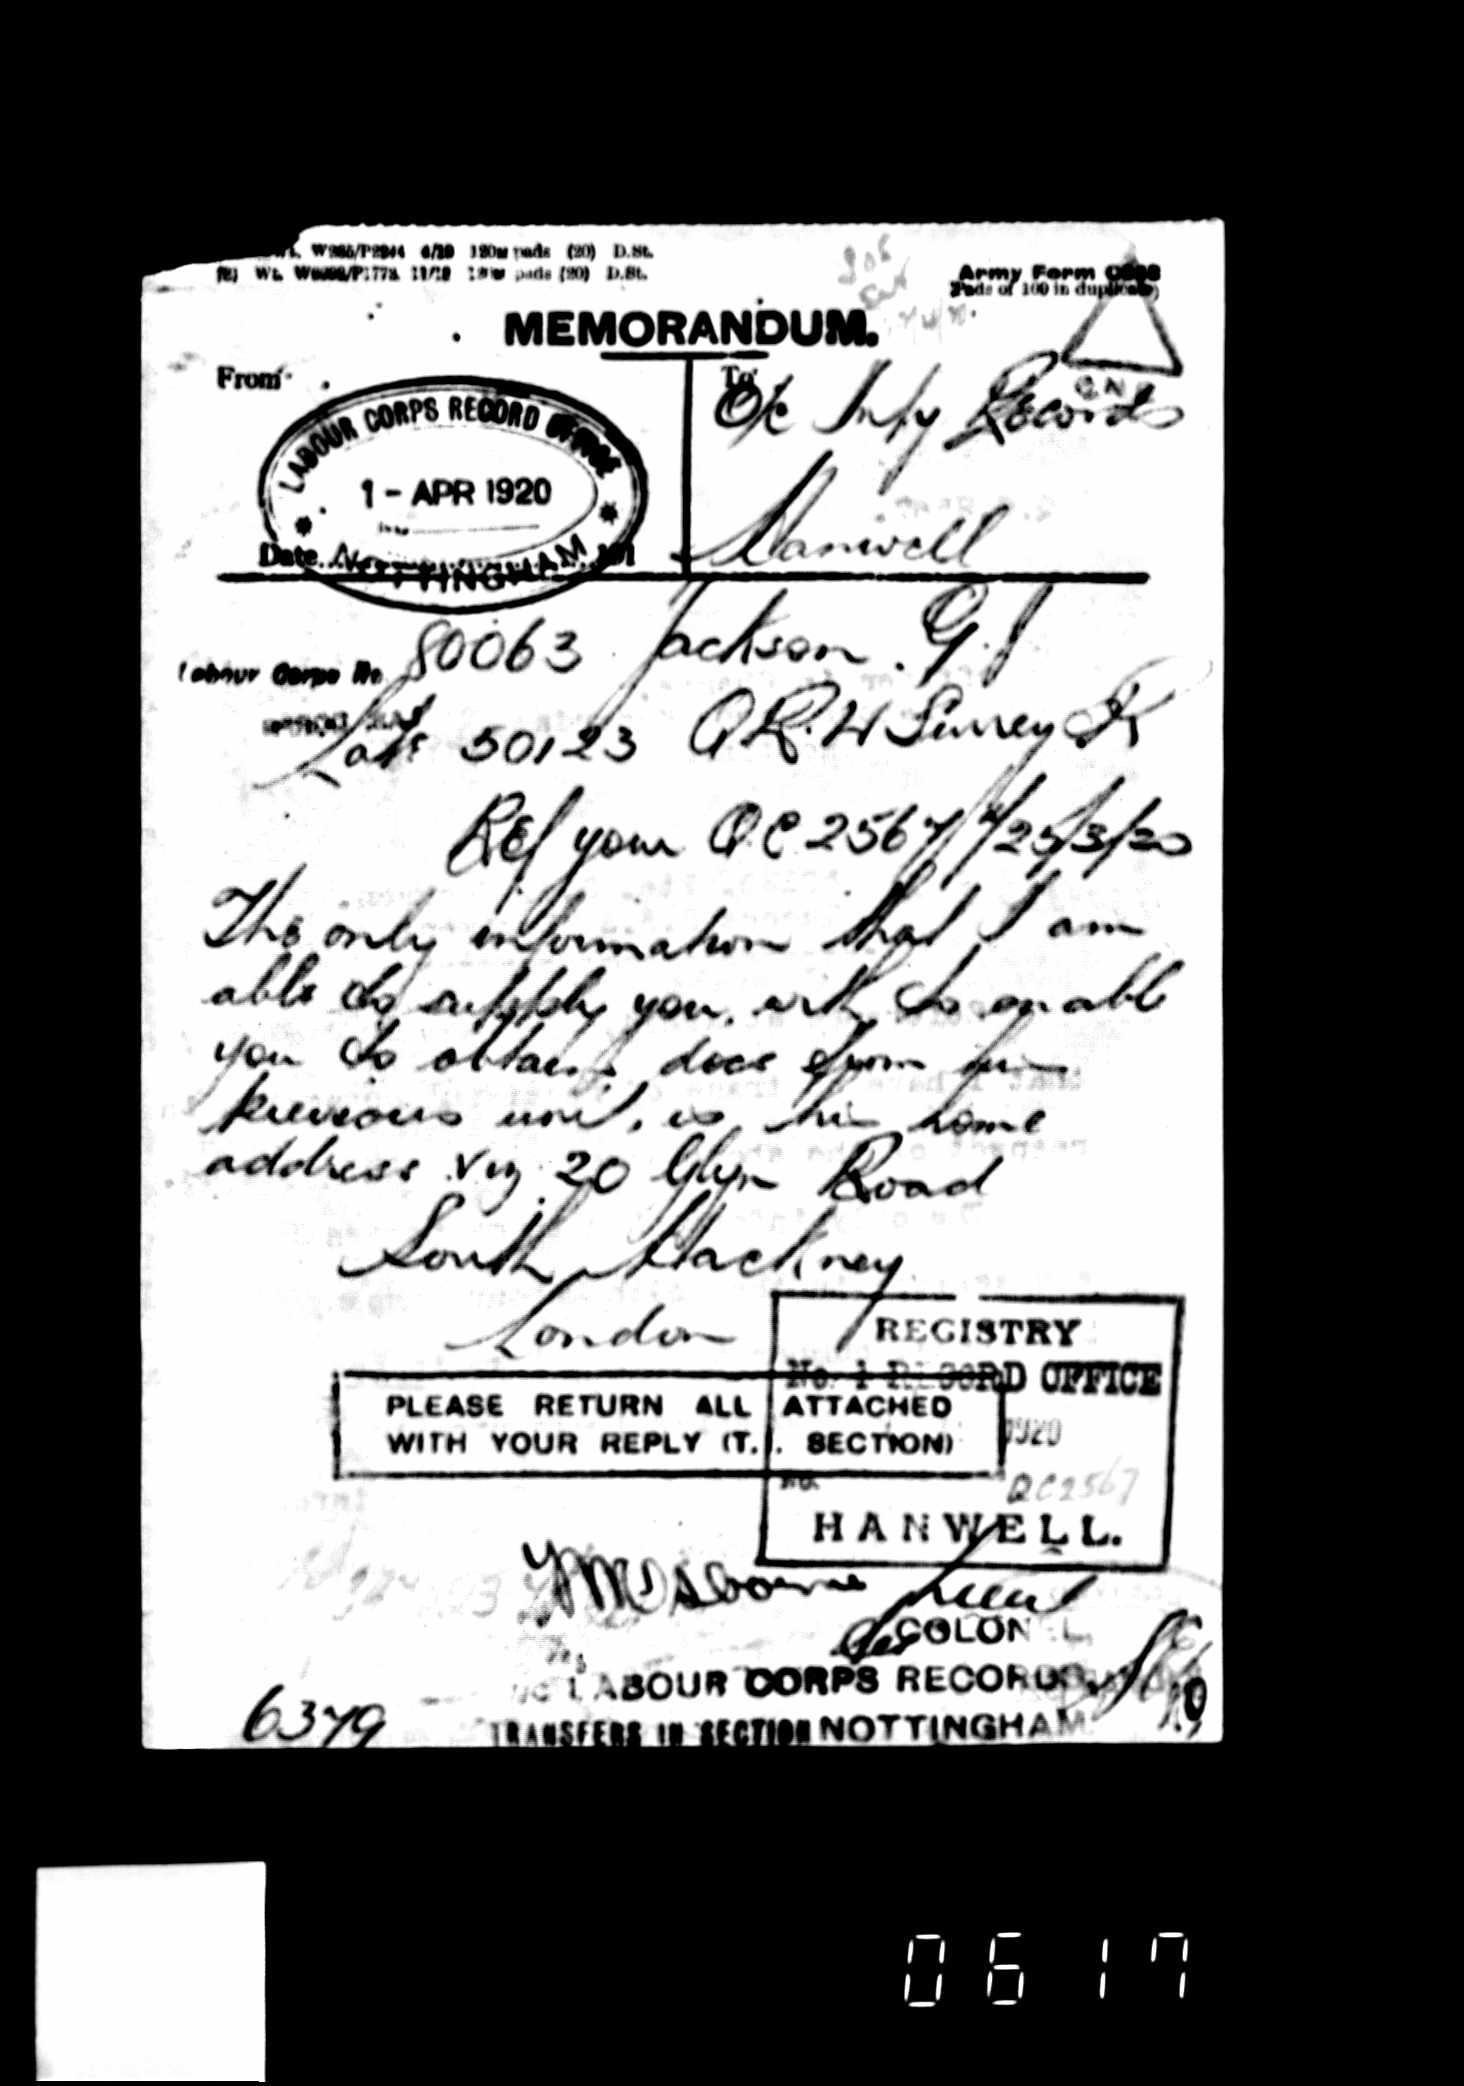 W985/P2944 4/19 120m pads (20) D.St.
(2) Wt. 11/19 pads (20) D.St.
Army Form
Pads of 100 in duplicate)
MEMORANDUM.
From
To
LABOUR CORPS RECORD OFFICE
1 - APR 1920
Date
NOTTINGHAM
O/c Infy Records
Hanwell
Labour Corps No 80063 Jackson. G. J
Late 50123 Q R. W Surrey R
Ref your Q.C 2567 25/3/20
The only information that I am
able to supply you, with to enable
you to obtain docs from his
previous unit, is his home
address viz 20 Glyn Road
South Hackney
London
REGISTRY
No. 1 RECORD OFFICE
1920
No. QC2567
HANWELL.
PLEASE RETURN ALL ATTACHED
WITH YOUR REPLY (T. SECTION)
Osborne Lieut
for COLONEL,
LABOUR CORPS RECORDS
TRANSFERS IN SECTION NOTTINGHAM
6379
0617